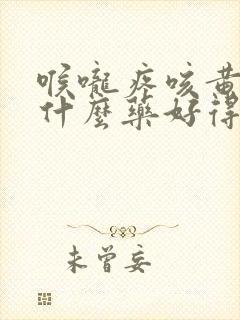 喉嚨疼咳黃
什麼藥好得
未曾妄